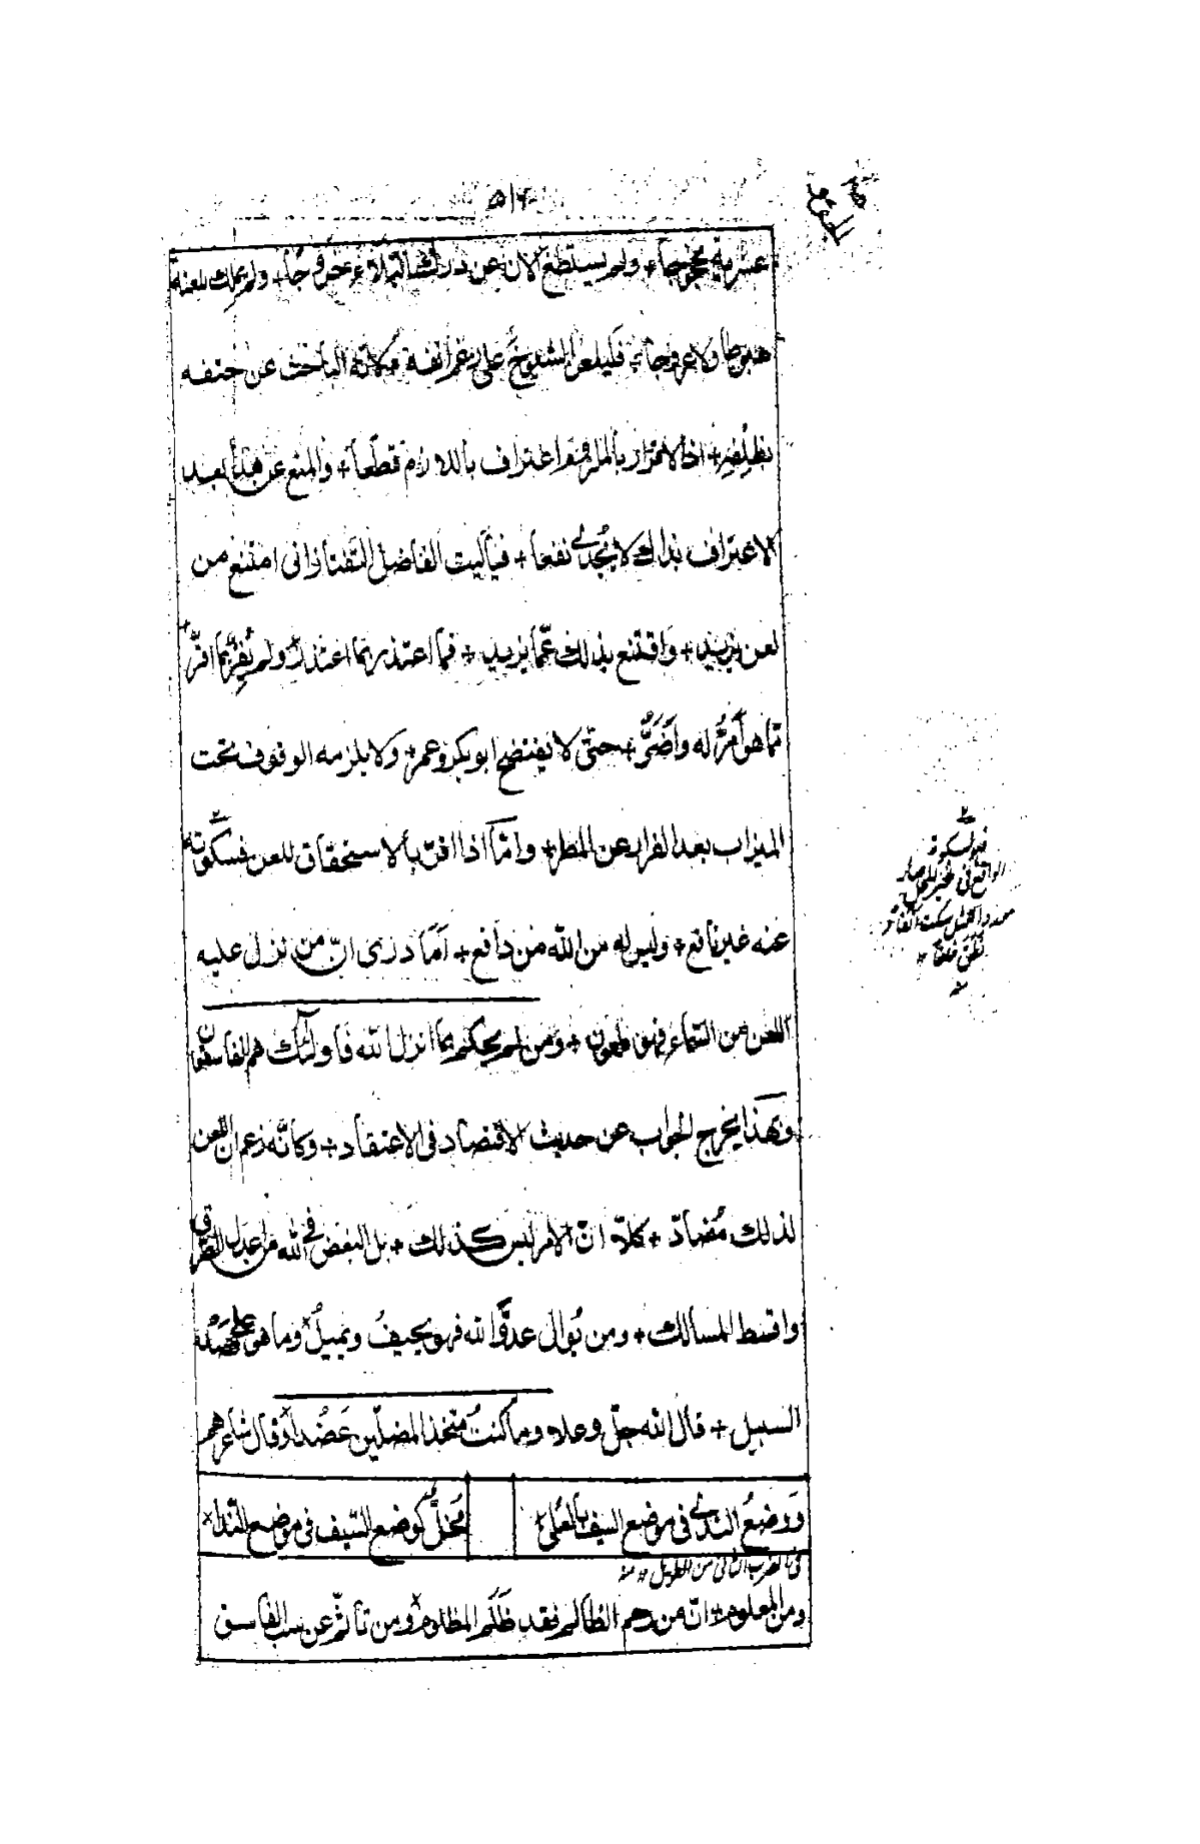 ۵۱۴
ولم يستطع الآن عن درك ولم يملك للعنه
ولا عروجا فليلعن على رغم انفه لانه الباحث عن حتفه
بظلفه + اذ الاقرار بالملزوم اعتراف باللازم قطعا + والمنع عن هذا بعد
الاعتراف بذلك لا يُجدي نفعا + فياليت الفاضل التفتازانى امتنع من
لعن يزيد + واقتنع بذلك عمّا يزيد + فما اعتذر بما اعتذر ولم يُقِرّ بما اقرّ
ممّا هو أمرّ له وأضرّ + حتّى لا يفتضح ابو بكر وعمر + ولا يلزمه الوقوف تحت
الميزاب بعد الفرار عن المطر + وامّا اذا اقرّ بالاستحقاق للعن فسكوته
عنه غير نافع + وليس له من الله من دافع + أما درى انّ من نزل عليه
اللعن من السّماء فهو ملعون + ومن لم يحكم بما انزل الله فاولئك هم الفاسقون
وبهذا يخرج الجواب عن حديث الاقتصاد فى الاعتقاد + وكانّه زعم انّ اللعن
لذلك مُضادّ + كلّا انّ الامر ليس كذلك + بل البغض في الله من اعدل الطرق
واقسط المسالك + ومن يُوالى عدوّ الله فهو يحيفُ ويميلُ وما هو على قصد
السبيل + قال الله جلّ وعلا وما كنت متخذ المضلّين عَضُدا وقال شاعرهم
وَوضعُ الندىٰ فى موضع السيف بالعُلىٰ مُخلٌّ كوضع السّيف فى موضع النّدا
الضرب الثانى من الطويل ۱۲ منه
ومن المعلوم انّ من رحم الظالم فقد ظَلَم المظلوم ومن تأثّم عن سبّ الفاسق
فيه لسكوته
الواقع فى